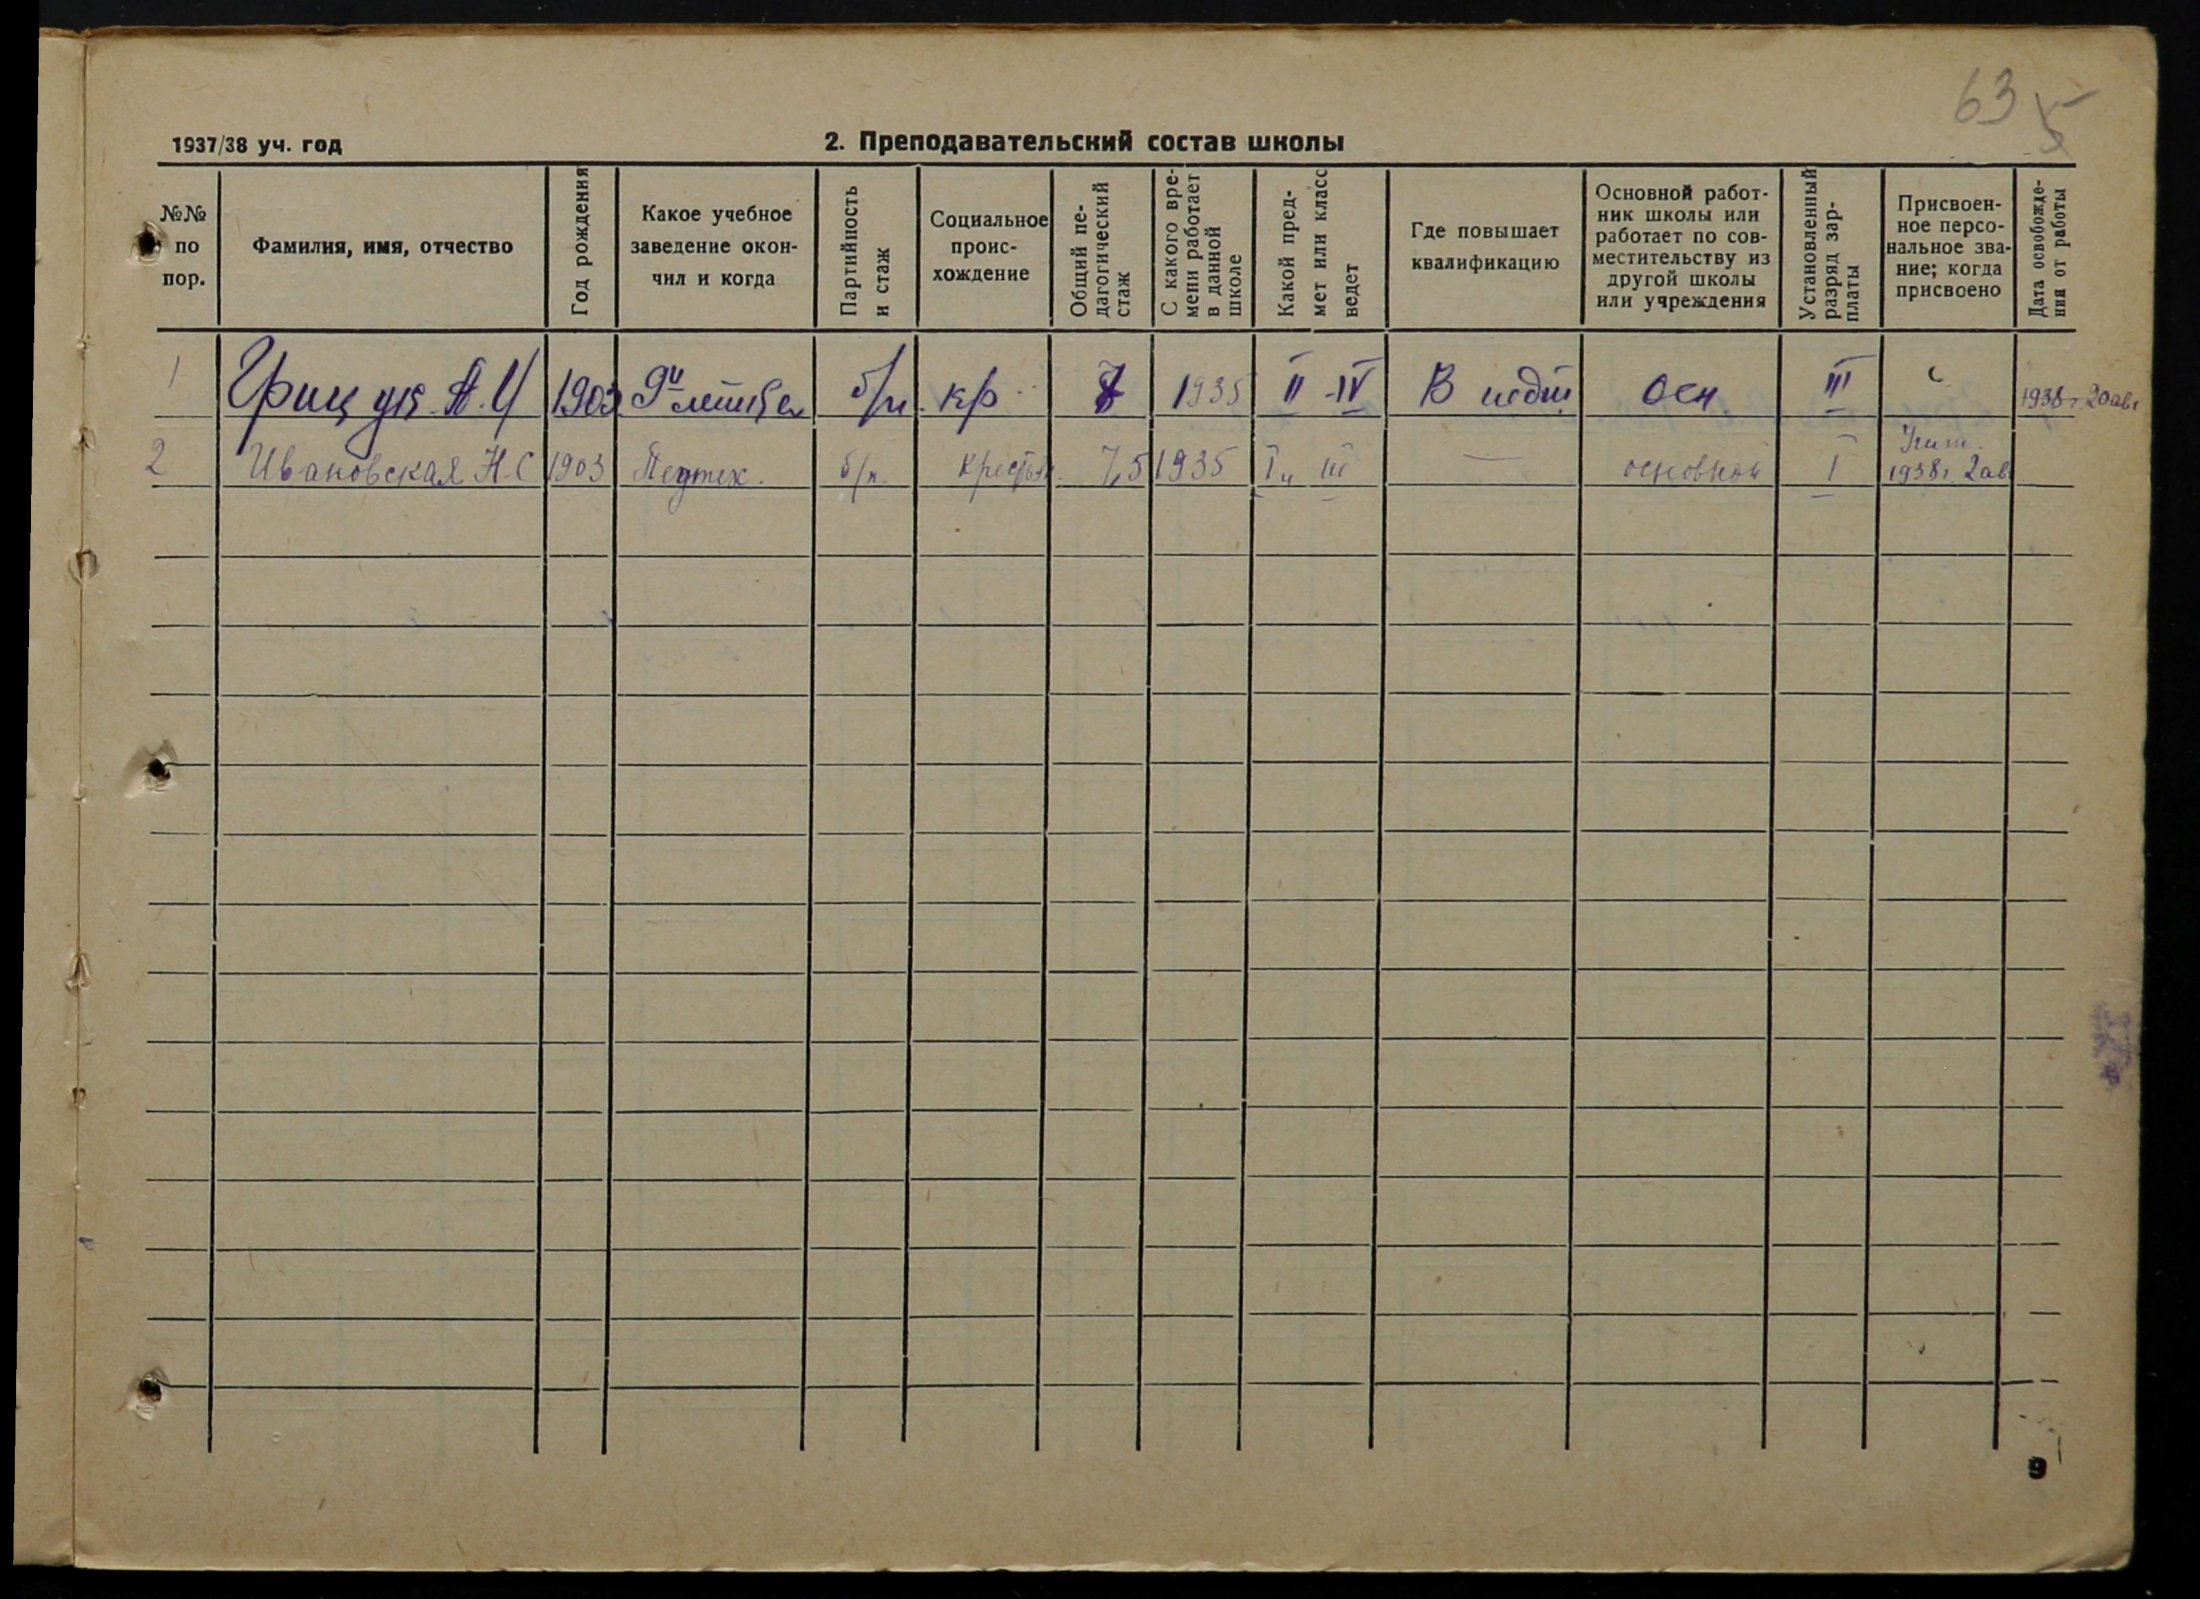 63 5
1937/38 уч. год
2. Преподавательский состав школы
№№ по пор.
Фамилия, имя, отчество
Год рождения
Какое учебное заведение окон-
чил и когда
Партийность и стаж
Социальное проис-
хождение
Общий пе-
дагогический стаж
С какого вре-
мени работает в данной школе
Какой пред-
мет или класс ведет
Где повышает квалификацию
Основной работ-
ник школы или работает по сов-
местительству из другой школы или учреждения
Установленный разряд зар-
платы
Присвоен-
ное персо-
нальное зва-
ние; когда присвоено
Дата освобожде-
ния от работы
1 А. 1903 б/п кр 7 1935 II - IV В осн III 1938 г. 20 ав.
2 Ивановская Н. С 1903 Педтех. б/п. крестьян. 7,5 1935 I и III — основной I Учит. 1938 г. 2 ав
9